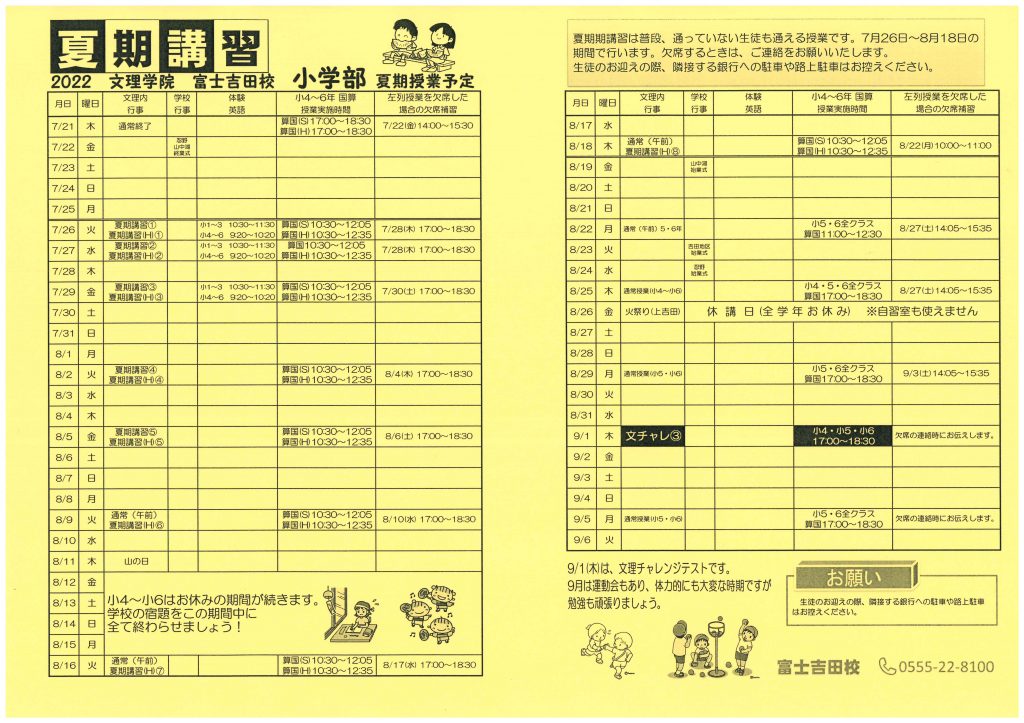 夏期講習
2022 文理学院 富士吉田校 小学部 夏期授業予定
月日 曜日 文理内行事 学校行事 体験英語 小4～6年 国算授業実施時間 左列授業を欠席した場合の欠席補習
7/21 木 通常終了 算国(S)17:00～18:30 7/22(金)14:00～15:30
算国(H)17:00～18:30
7/22 金 忍野 山中湖 終業式
7/23 土
7/24 日
7/25 月
7/26 火 夏期講習① 小1～3 10:30～11:30 算国(S)10:30～12:05 7/28(木) 17:00～18:30
夏期講習(H)① 小4～6 9:20～10:20 算国(H)10:30～12:35
7/27 水 夏期講習② 小1～3 10:30～11:30 算国10:30～12:05 7/28(木) 17:00～18:30
夏期講習(H)② 小4～6 9:20～10:20 算国(H)10:30～12:35
7/28 木
7/29 金 夏期講習③ 小1～3 10:30～11:30 算国(S)10:30～12:05 7/30(土) 17:00～18:30
夏期講習(H)③ 小4～6 9:20～10:20 算国(H)10:30～12:35
7/30 土
7/31 日
8/1 月
8/2 火 夏期講習④ 算国(S)10:30～12:05 8/4(木) 17:00～18:30
夏期講習(H)④ 算国(H)10:30～12:35
8/3 水
8/4 木
8/5 金 夏期講習⑤ 算国(S)10:30～12:05 8/6(土) 17:00～18:30
夏期講習(H)⑤ 算国(H)10:30～12:35
8/6 土
8/7 日
8/8 月
8/9 火 通常（午前） 算国(S)10:30～12:05 8/10(水) 17:00～18:30
夏期講習(H)⑥ 算国(H)10:30～12:35
8/10 水
8/11 木 山の日
8/12 金
8/13 土
8/14 日
8/15 月
小4～小6はお休みの期間が続きます。
学校の宿題をこの期間中に
全て終わらせましょう！
8/16 火 通常（午前） 算国(S)10:30～12:05 8/17(水) 17:00～18:30
夏期講習(H)⑦ 算国(H)10:30～12:35
夏期期講習は普段、通っていない生徒も通える授業です。7月26日～8月18日の
期間で行います。欠席するときは、ご連絡をお願いいたします。
生徒のお迎えの際、隣接する銀行への駐車や路上駐車はお控えください。
月日 曜日 文理内行事 学校行事 体験英語 小4～6年 国算授業実施時間 左列授業を欠席した場合の欠席補習
8/17 水
8/18 木 通常（午前） 算国(S)10:30～12:05 8/22(月)10:00～11:00
夏期講習(H)⑧ 算国(H)10:30～12:35
8/19 金 山中湖 始業式
8/20 土
8/21 日
8/22 月 通常（午前）5・6年 小5・6全クラス 8/27(土)14:05～15:35
算国11:00～12:30
8/23 火 吉田地区 始業式
8/24 水 忍野 始業式
8/25 木 通常授業(小4～小6) 小4・5・6全クラス 8/27(土)14:05～15:35
算国17:00～18:30
8/26 金 火祭り(上吉田) 休 講 日(全学年お休み) ※自習室も使えません
8/27 土
8/28 日
8/29 月 通常授業(小5・小6) 小5・6全クラス 9/3(土)14:05～15:35
算国17:00～18:30
8/30 火
8/31 水
9/1 木 文チャレ③ 小4・小5・小6 欠席の連絡時にお伝えします。
17:00～18:30
9/2 金
9/3 土
9/4 日
9/5 月 通常授業(小5・小6) 小5・6全クラス 欠席の連絡時にお伝えします。
算国17:00～18:30
9/6 火
9/1(木)は、文理チャレンジテストです。
9月は運動会もあり、体力的にも大変な時期ですが
勉強も頑張りましょう。
お願い
生徒のお迎えの際、隣接する銀行への駐車や路上駐車
はお控えください。
富士吉田校 0555-22-8100